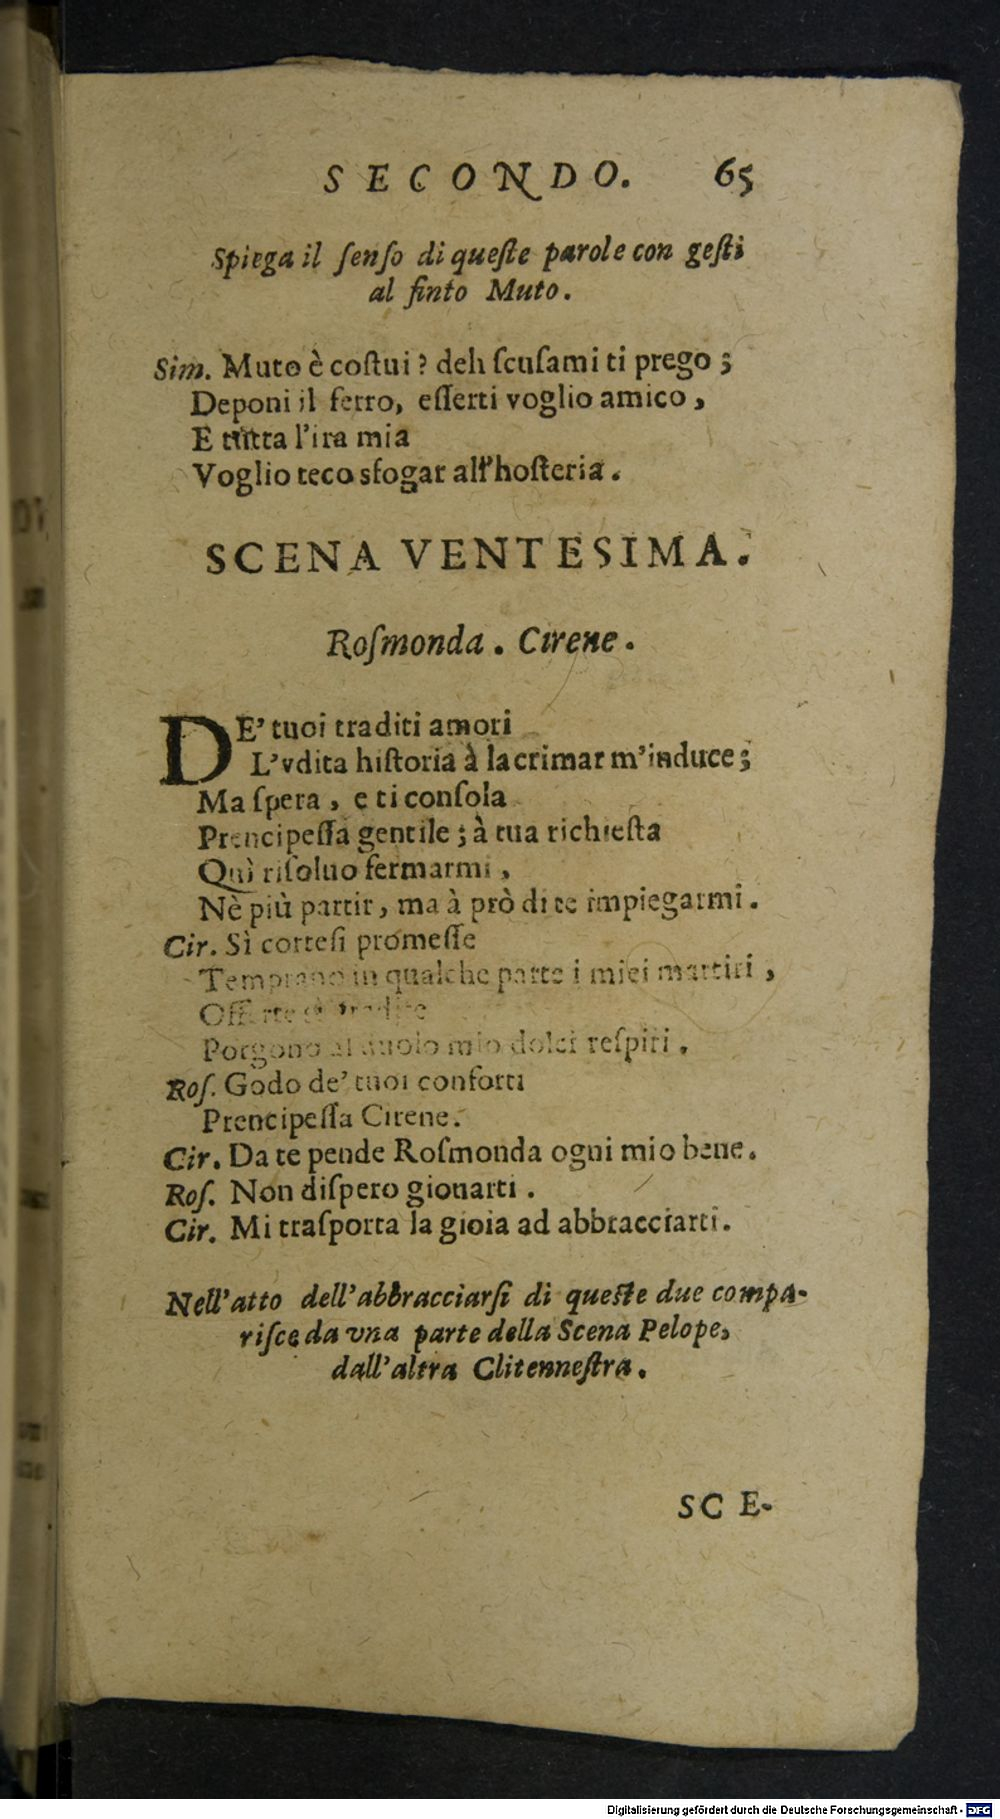 SECONDO. 65
Spiega il ſenſo di queſte parole con geſti
al finto Muto.
Sim. Muto è coſtui? deh ſcuſami ti prego;
Deponi il ferro, eſſerti voglio amico,
E tutta l'ira mia
Voglio teco sfogar all'hoſteria.
SCENA VENTESIMA.
Roſmonda. Cirene.
DE' tuoi traditi amori
L'vdita hiſtoria à lacrimar m'induce;
Ma ſpera, e ti conſola
Prencipeſſa gentile; à tua richieſta
Quì riſoluo fermarmi,
Nè più partir, ma à prò di te impiegarmi.
Cir. Sì corteſi promeſſe
Temprano in qualche parte i miei martiri,
Offerte
Porgono al duolo mio dolci reſpiri.
Roſ. Godo de' tuoi conforti
Prencipeſſa Cirene.
Cir. Da te pende Roſmonda ogni mio bene.
Roſ. Non diſpero giouarti.
Cir. Mi traſporta la gioia ad abbracciarti.
Nell'atto dell'abbracciarſi di queſte due compa-
riſce da vna parte della Scena Pelope,
dall'altra Clitenneſtra.
SCE-
Digitalisierung gefördert durch die Deutsche Forschungsgemeinschaft - DFG